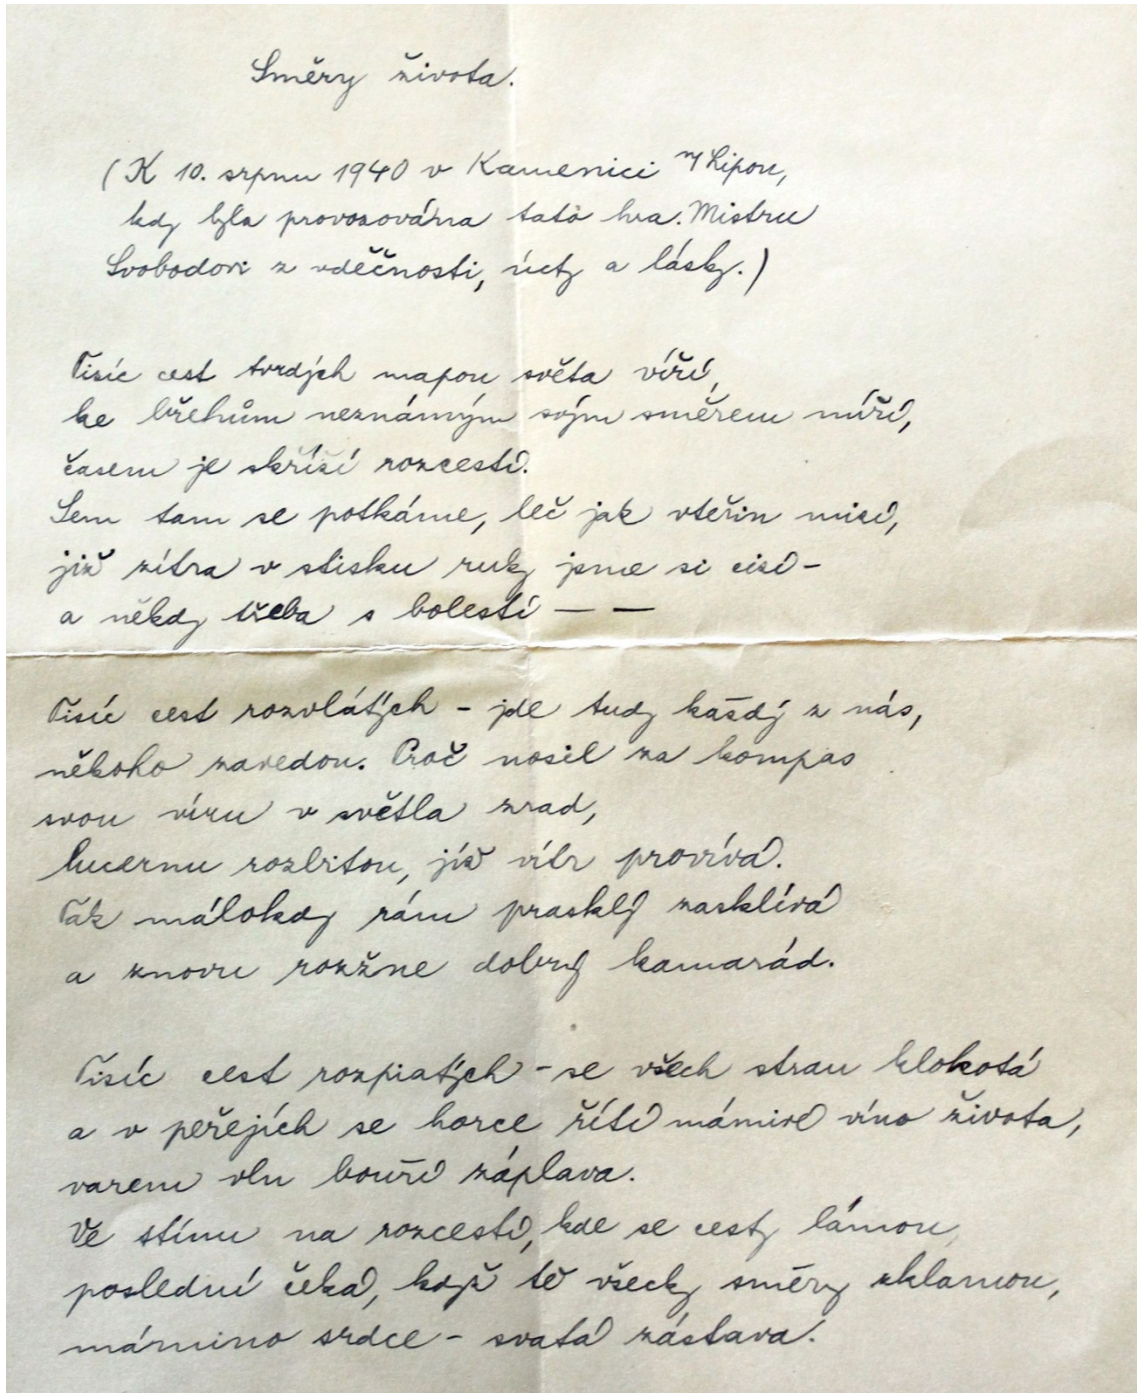 Směry života.
(K 10. srpnu 1940 v Kamenici n/Lipou,
kdy byla provozována tato hra. Mistru
Svobodovi z vděčnosti, úcty a lásky.)
Tisíc cest tvrdých mapou světa víří,
ke břehům neznámým svým směrem míří,
časem je skříží rozcestí.
Sem tam se potkáme, leč jak vteřin mizí,
již zítra v stisku ruky jsme si cizí -
a někdy třeba s bolestí — —
Tisíc cest rozvlátých - jde tudy každý z nás,
někoho zavedou. Proč nosil za kompas
svou víru v světla zrad,
lucernu rozbitou, jíž vítr provívá.
Tak málokdy rám prasklý zasklívá
a znovu rozžne dobrý kamarád.
Tisíc cest rozpiatých - se všech stran klokotá
a v peřejích se horce řítí mámivé víno života,
varem vln bouří záplava.
Ve stínu na rozcestí, kde se cesty lámou,
poslední čeká, když tě všecky směry zklamou,
mámino srdce - svatá zástava.